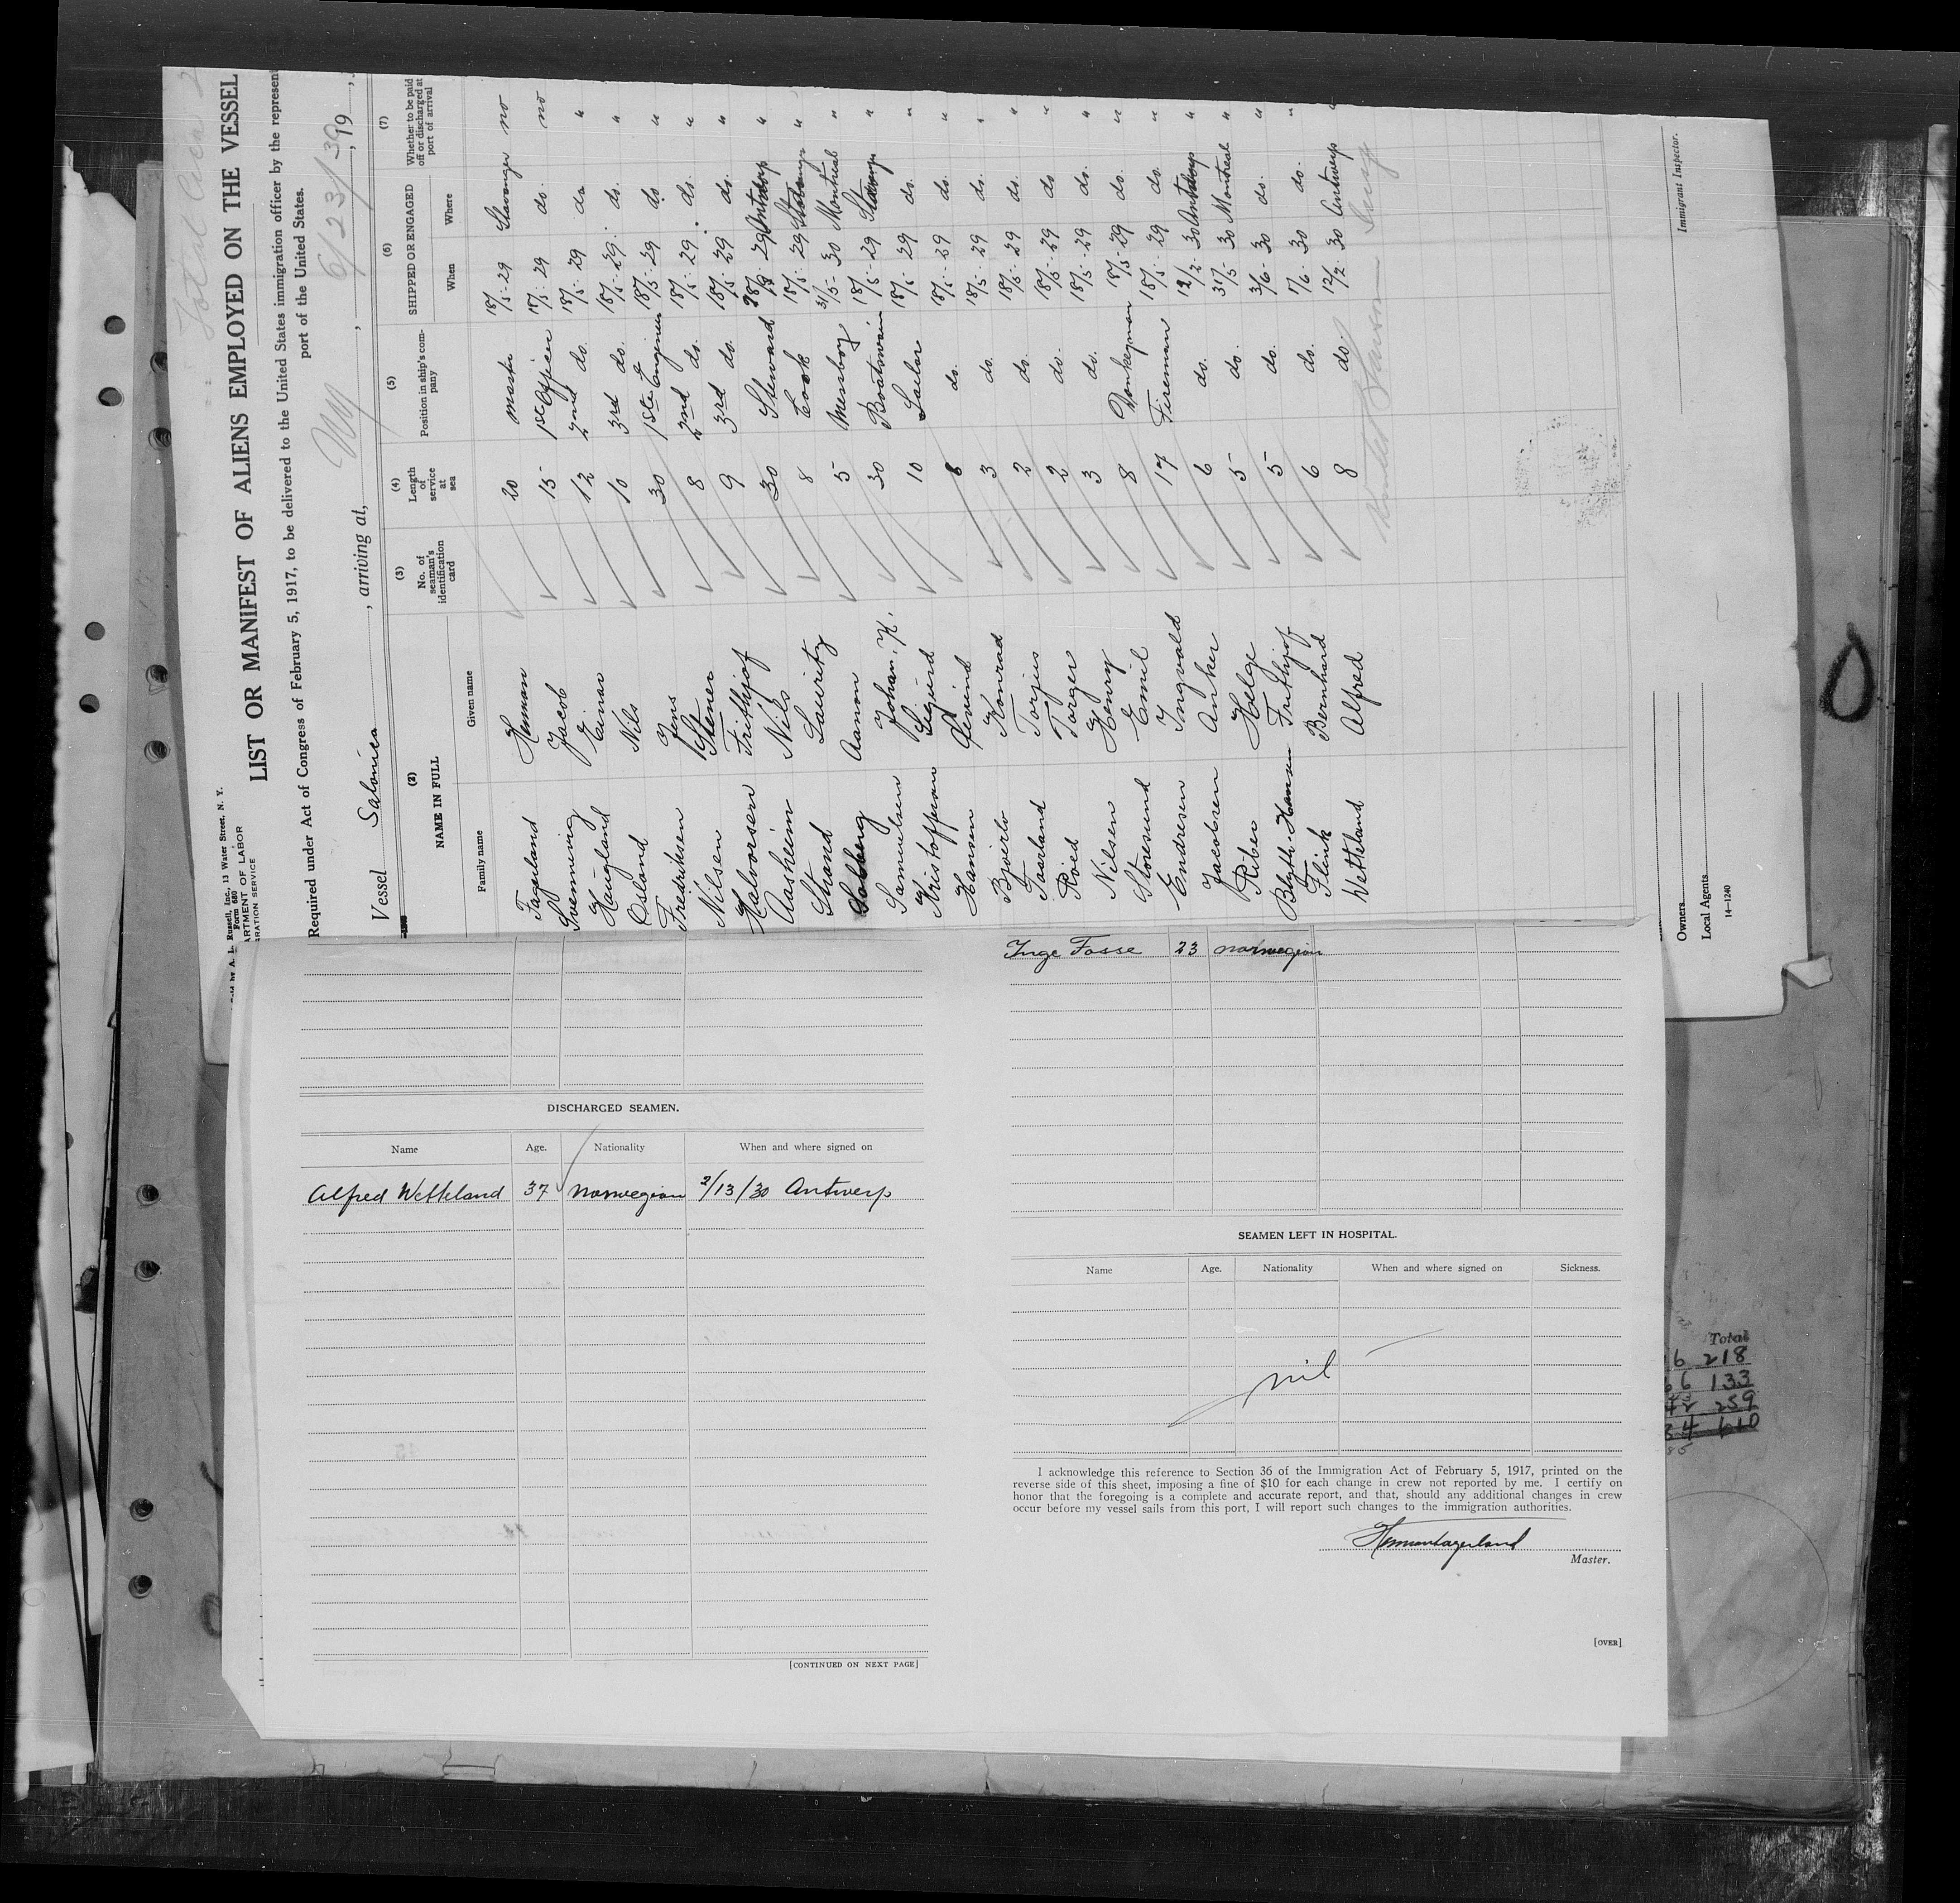 Total Crew 2
Sold by A. L. Russell, Inc., 13 Water Street, N. Y.
Form 680
ARTMENT OF LABOR
RATION SERVICE
LIST OR MANIFEST OF ALIENS EMPLOYED ON THE VESSEL
Required under Act of Congress of February 5, 1917, to be delivered to the United States immigration officer by the represent
port of the United States.
Vessel Salonica, arriving at, NY, 6/23/30, 19
(2) (3) (4) (5) (6) (7)
NAME IN FULL No. of seaman's identification card Length of service at sea Position in ship's company SHIPPED OR ENGAGED Whether to be paid off or discharged at port of arrival
Family name Given name When Where
Fagerland Herman 20 Master 18/5-29 Stavanger no
Svenneving Jacob 15 1st Officer 18/5-29 do. no
Haugland Einar 12 2nd do. 18/5-29 do "
Osland Nils 10 3rd do. 18/5-29 do. "
Fredriksen Jens 30 1st Engineer 18/5-29 do "
Nilsen Stener 8 2nd do. 18/5-29 do. "
Halvorsen Frithjof 9 3rd do. 18/5-29 do. "
Aasheim Nils 30 Steward 29 Antwerp "
Strand Lauritz 8 Cook 18/5-29 Stavanger "
Solberg Aanon 5 Messboy 31/5-30 Montreal "
Samuelsen Johan. K. 30 Boatswain 18/5-29 Stavanger "
Kristoffersen Sigurd 10 Sailor 18/5-29 do. "
Hansen Øivind 8 do. 18/5-29 do. "
Konrad 3 do. 18/5-29 do. "
Taarland Torjus 2 do. 18/5-29 do. "
Røied Torger 2 do. 18/5-29 do "
Nilsen Henry 3 do. 18/5-29 do. "
Storesund Emil 8 Donkeyman 18/5-29 do. "
Endresen Ingvald 17 Fireman 18/5-29 do. "
Jacobsen Anker 6 do. 12/2-30 Antwerp "
Riber Helge 5 do. 31/5-30 Montreal "
Blyth-Hansen Frithjof 5 do. 3/6-30 do. "
Flink Bernhard 6 do. 1/6-30 do. "
Wetteland Alfred 8 do. 12/2-30 Antwerp "
Immigrant Inspector.
Owners
Local Agents
14—1240
Inge Fosse 23 norwegian
DISCHARGED SEAMEN.
Name Age. Nationality When and where signed on
Alfred Wetteland 37 norwegian 2/13/30 Antwerp
[CONTINUED ON NEXT PAGE]
SEAMEN LEFT IN HOSPITAL.
Name Age. Nationality When and where signed on Sickness.
nil
I acknowledge this reference to Section 36 of the Immigration Act of February 5, 1917, printed on the
reverse side of this sheet, imposing a fine of $10 for each change in crew not reported by me. I certify on
honor that the foregoing is a complete and accurate report, and that, should any additional changes in crew
occur before my vessel sails from this port, I will report such changes to the immigration authorities.
Herman Fagerland
Master.
[OVER]
Total
6 218
6 133
259
34 610